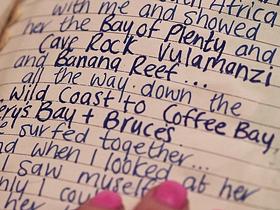 with me and showed
her the Bay of Plenty and
Cave Rock Vulamanzi
and Banana Reef...
all the way down the
Wild Coast to Coffee Bay,
ery's Bay + Bruces.
e surfed together...
nd when I looked at her
I saw myself
nly I cou
her